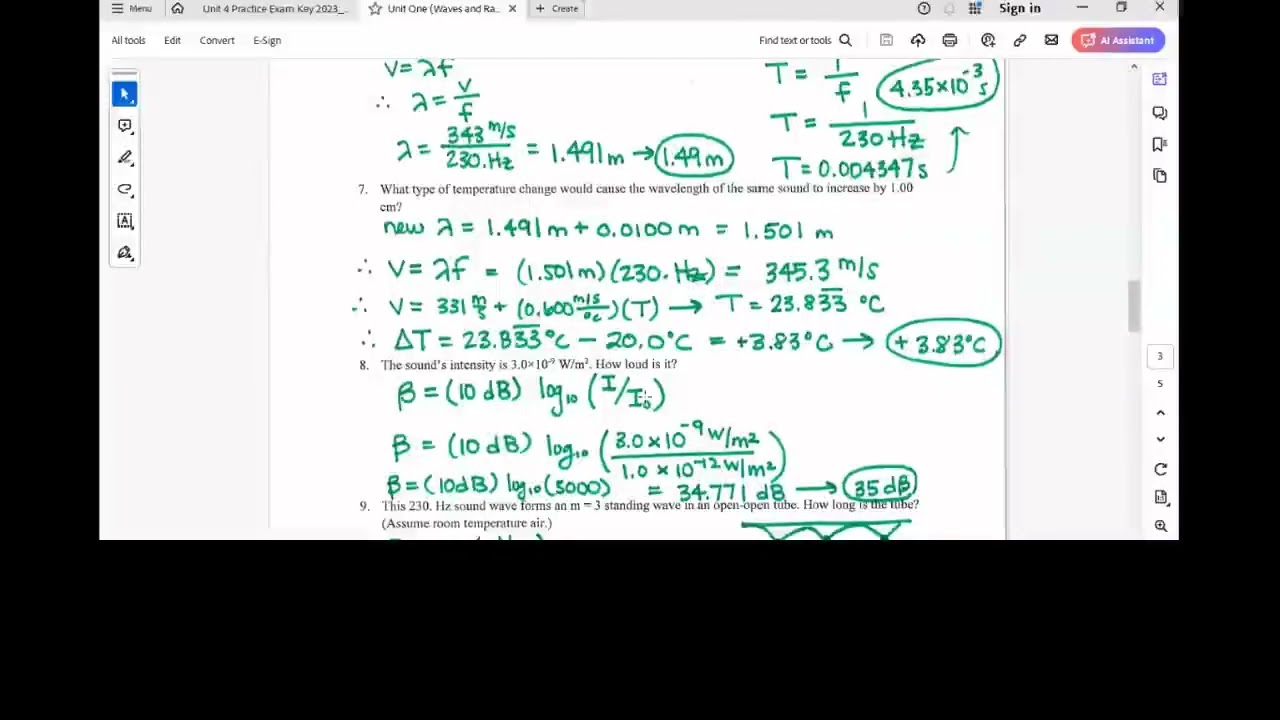 Menu Unit 4 Practice Exam Key 2023_... Unit One (Waves and Ra... × + Create Sign in
All tools Edit Convert E-Sign Find text or tools AI Assistant
V = λf
T = 1/f 4.35×10⁻³ s
∴ λ = V/f
T = 1/230 Hz
λ = 343 m/s / 230. Hz = 1.491 m → 1.49 m
T = 0.004347 s
7. What type of temperature change would cause the wavelength of the same sound to increase by 1.00
cm?
new λ = 1.491 m + 0.0100 m = 1.501 m
∴ V = λf = (1.501 m)(230. Hz) = 345.3 m/s
∴ V = 331 m/s + (0.600 m/s/°C)(T) → T = 23.833 °C
∴ ΔT = 23.833°C − 20.0°C = +3.83°C → +3.83°C
8. The sound's intensity is 3.0×10⁻⁹ W/m². How loud is it?
β = (10 dB) log₁₀ (I/I₀)
β = (10 dB) log₁₀ (3.0 × 10⁻⁹ W/m² / 1.0 × 10⁻¹² W/m²)
β = (10dB) log₁₀ (3000) = 34.771 dB → 35 dB
9. This 230. Hz sound wave forms an m = 3 standing wave in an open-open tube. How long is the tube?
(Assume room temperature air.)
3
5